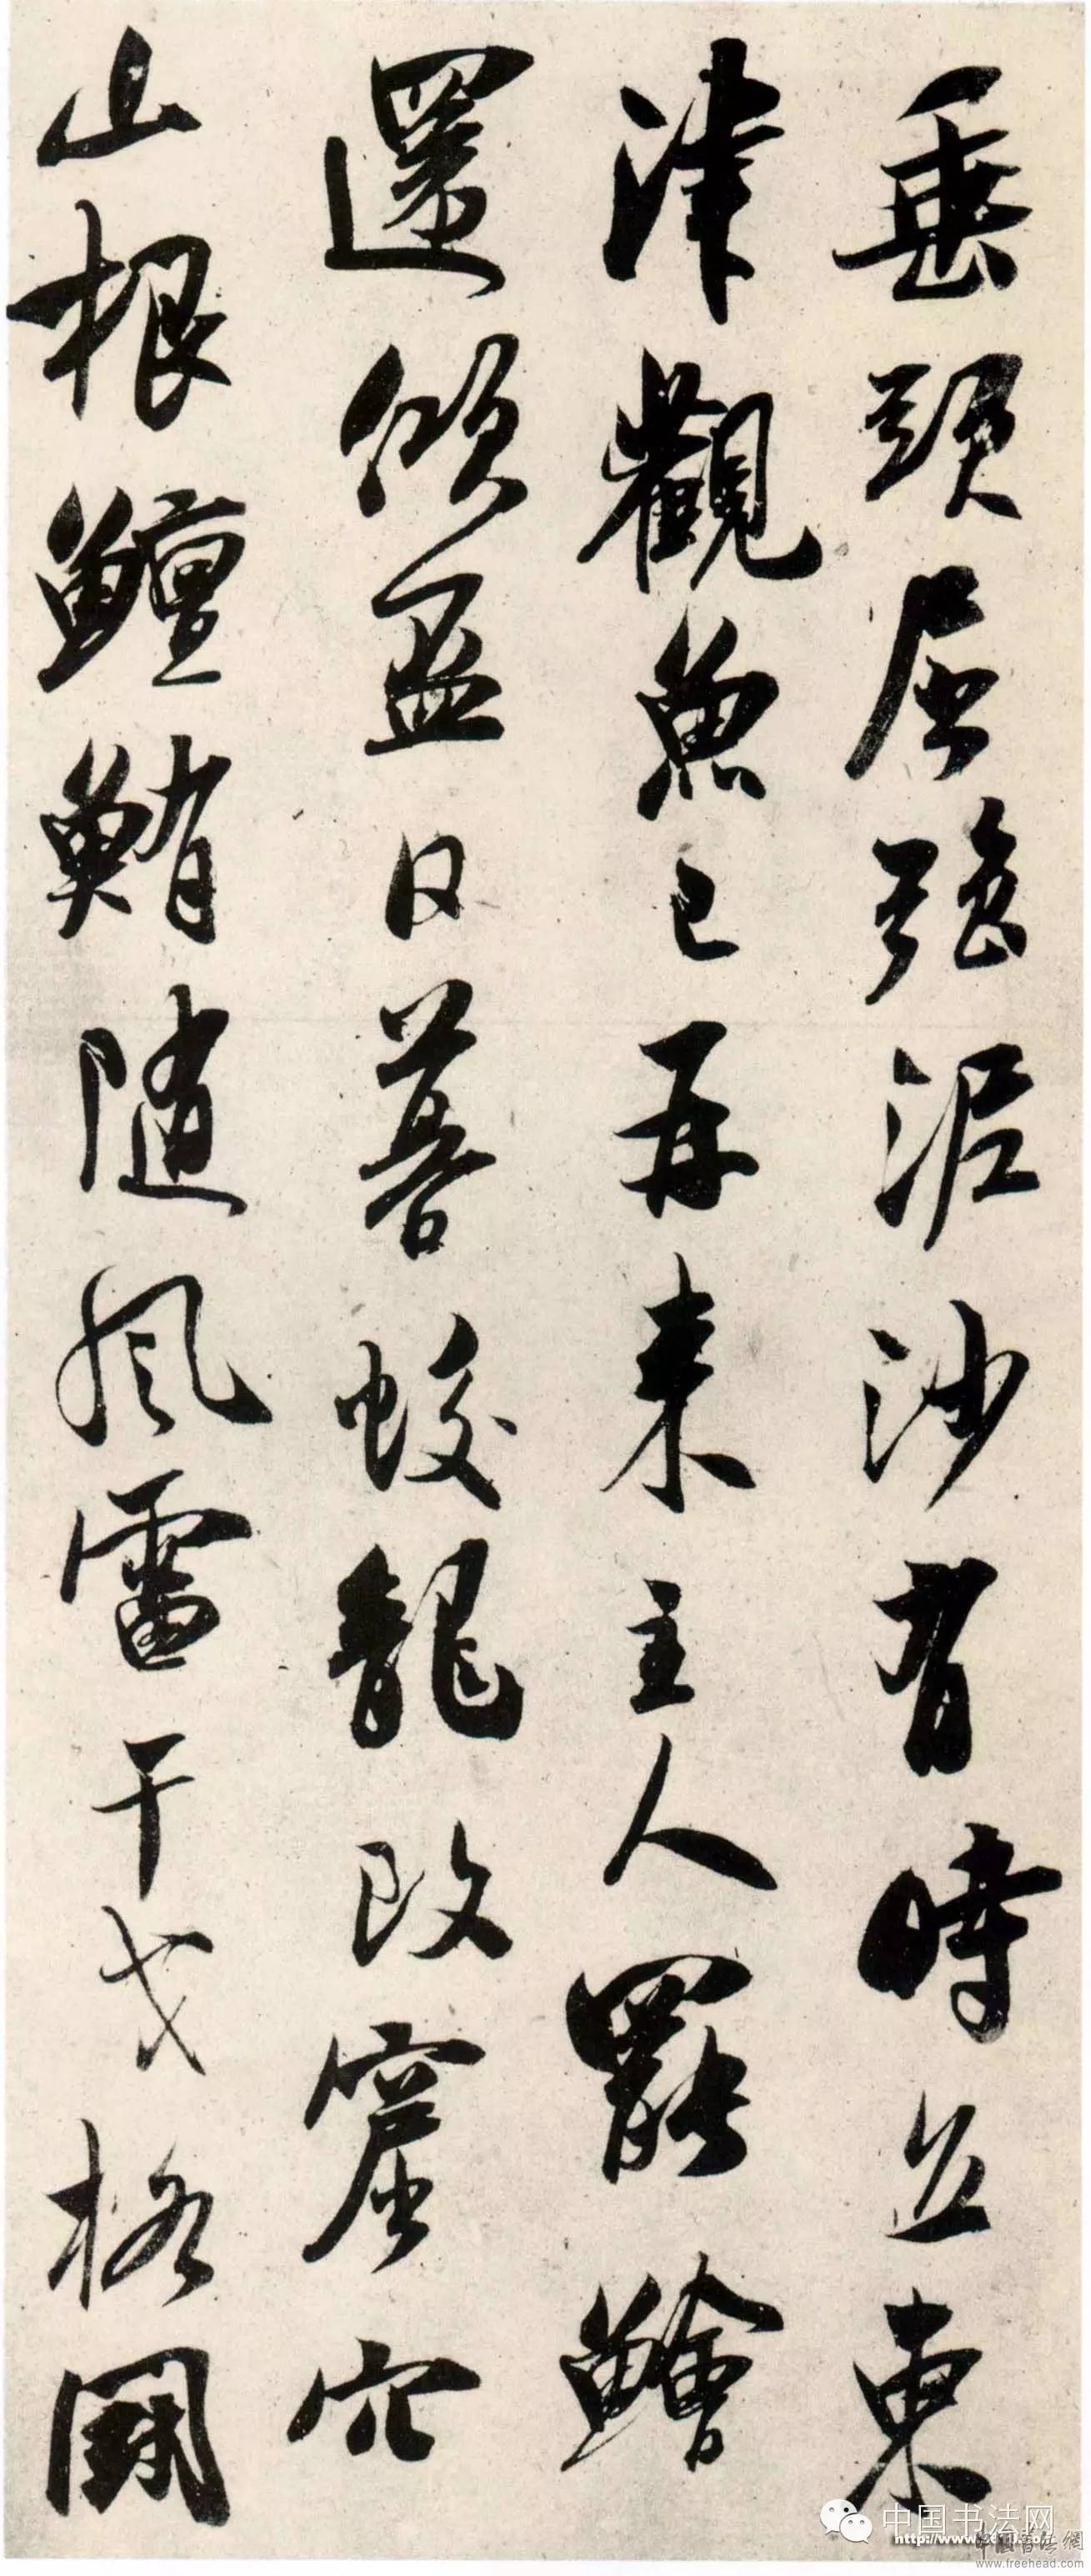 垂頭屈強泥沙有時立東
津觀魚已再来主人罷鱠
還傾盃日暮蛟龍改窟穴
山根鱣鮪隨風雷干戈格鬭
中国书法网
中國書法網
www.freehead.com